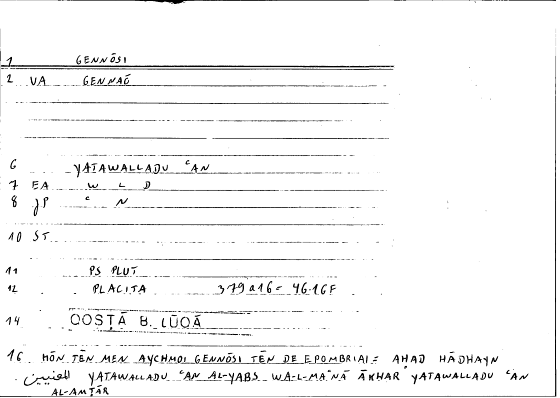 1 GENNŌSI
2 VA GENNAŌ
6 YATAWALLADU ʿAN
7 EA W L D
8 JP ʿ N
10 ST
11 PS PLUT
12 PLACITA 379a16 = 46.16F
14 QOSṬĀ B. LŪQĀ
16 HŌN TĒN MEN AYCHMOI GENNŌSI TĒN DE EPOMBRIAI = AḤAD HĀDHAYN
المعنيين YATAWALLADU ʿAN AL-YABS WA-L-MAʿNĀ ĀKHAR YATAWALLADU ʿAN
AL-AMṬĀR